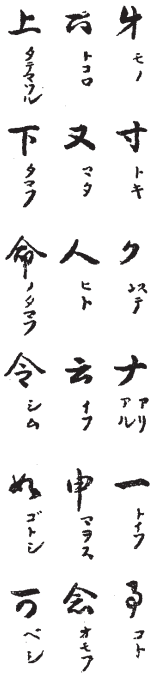 牛 モノ
寸 トキ
ク
ナ アリ アル
一 トイフ
事 コト
トコロ
又 マタ
人 ヒト
云 イフ
申 マヲス
念 オモフ
上 タテマツル
下 タマフ
命 ノタマフ
令 シム
如 ゴトシ
可 ベシ